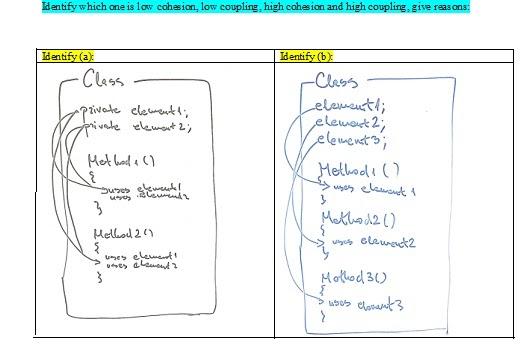 Identify which one is low cohesion, low coupling, high cohesion and high coupling, give reasons:
Identify (a):
Class
private element1;
private element2;
Method1 ()
{
uses element1
uses element2
}
Method2 ()
{
uses element1
uses element2
}
Identify (b):
Class
element1;
element2;
element3;
Method1 ()
{
uses element 1
}
Method2 ()
{
uses element2
}
Method3 ()
{
uses element3
}